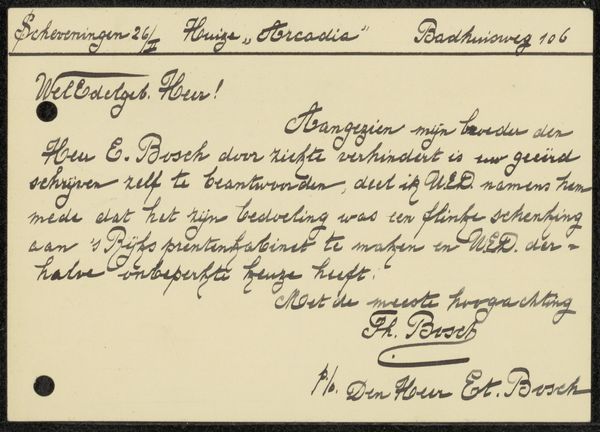 Scheveningen 26/II Huize "Arcadia" Badhuisweg 106
WelEdelgeb. Heer!
Aangezien mijn broeder den
Heer E. Bosch door ziekte verhinderd is uw geëerd
schrijven zelf te beantwoorden, deel ik U.E.D. namens hem
mede dat het zijn bedoeling was een flinke schenking
aan 's Rijks prentenkabinet te maken en U.E.D. der=
halve onbeperkte keuze heeft.
Met de meeste hoogachting
Th. Bosch
p/o. Den Heer Et. Bosch